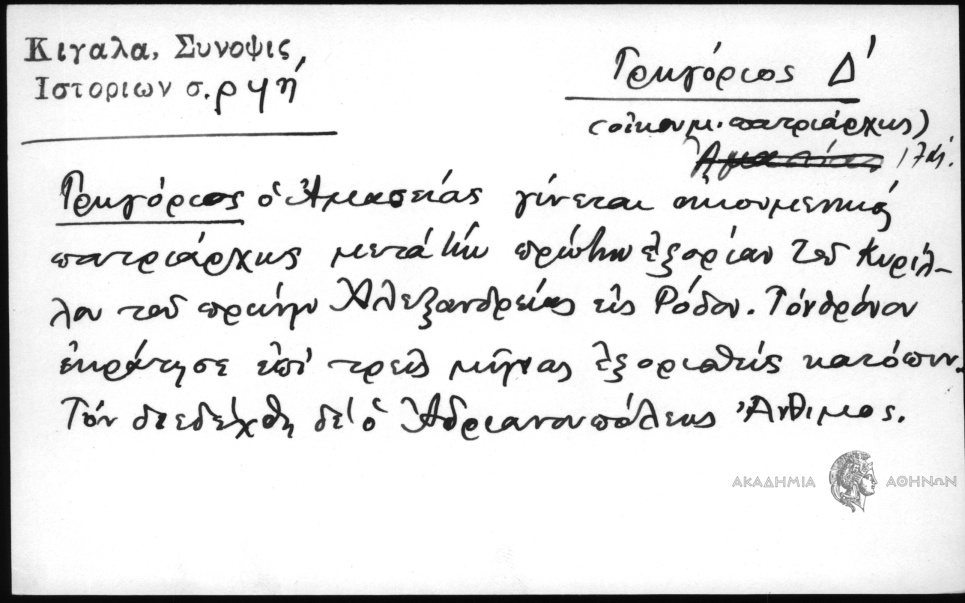 Κιγαλα, Συνοψις
Ιστοριων σ. ρϟή
Γρηγόριος Δ'
(οἰκουμ. πατριάρχης)
17 αἰ.
Γρηγόριος ὁ Ἀμασείας γίνεται οἰκουμενικός
πατριάρχης μετά τήν πρώτην ἐξορίαν τοῦ Κυρίλ-
λου τοῦ πρώην Ἀλεξανδρείας εἰς Ρόδον. Τόν θρόνον
ἐκράτησε ἐπί τρεῖς μῆνας ἐξορισθείς κατόπιν.
Τόν διεδέχθη δέ ὁ Ἀδριανουπόλεως Ἄνθιμος.
ΑΚΑΔΗΜΙΑ ΑΘΗΝΩΝ